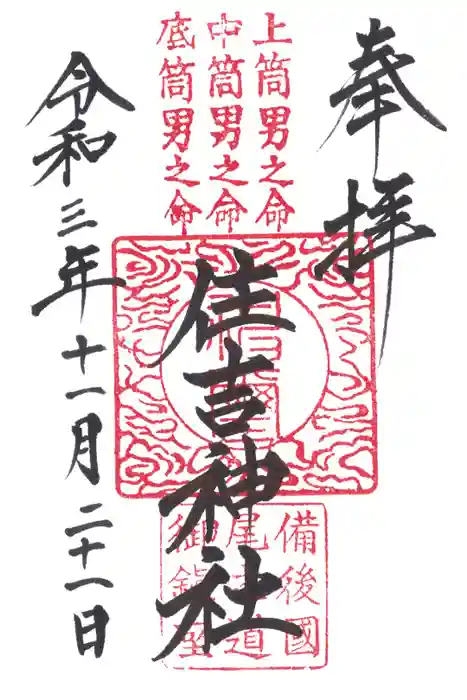 奉拝
上筒男之命
中筒男之命
底筒男之命
住吉神社
備後國
尾道
御鎮座
令和三年十一月二十一日